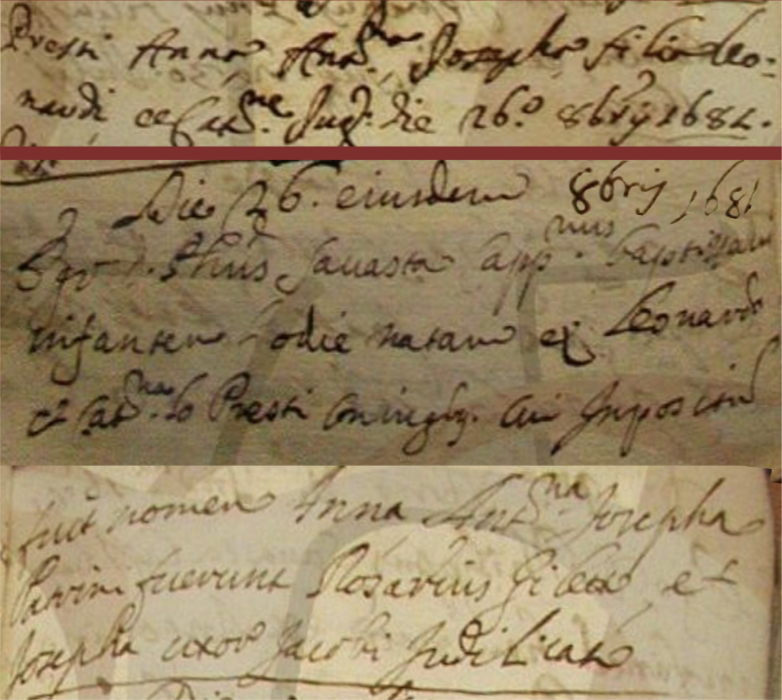 Presti Anna Ant.na Josepha filia Leo-
nardi et Cat.ne Jug. die 26.o 8bris 1681.
Die 26. eiusdem 8bris 1681
Ego D. Savasta app.nus baptizavi
infantem hodie natam ex Leonardo
et Cat.na lo Presti coniugb. cui Impositū
fuit nomen Anna Ant.na Josepha
Patrini fuerunt Rosarius et
Josepha uxor Jacobi